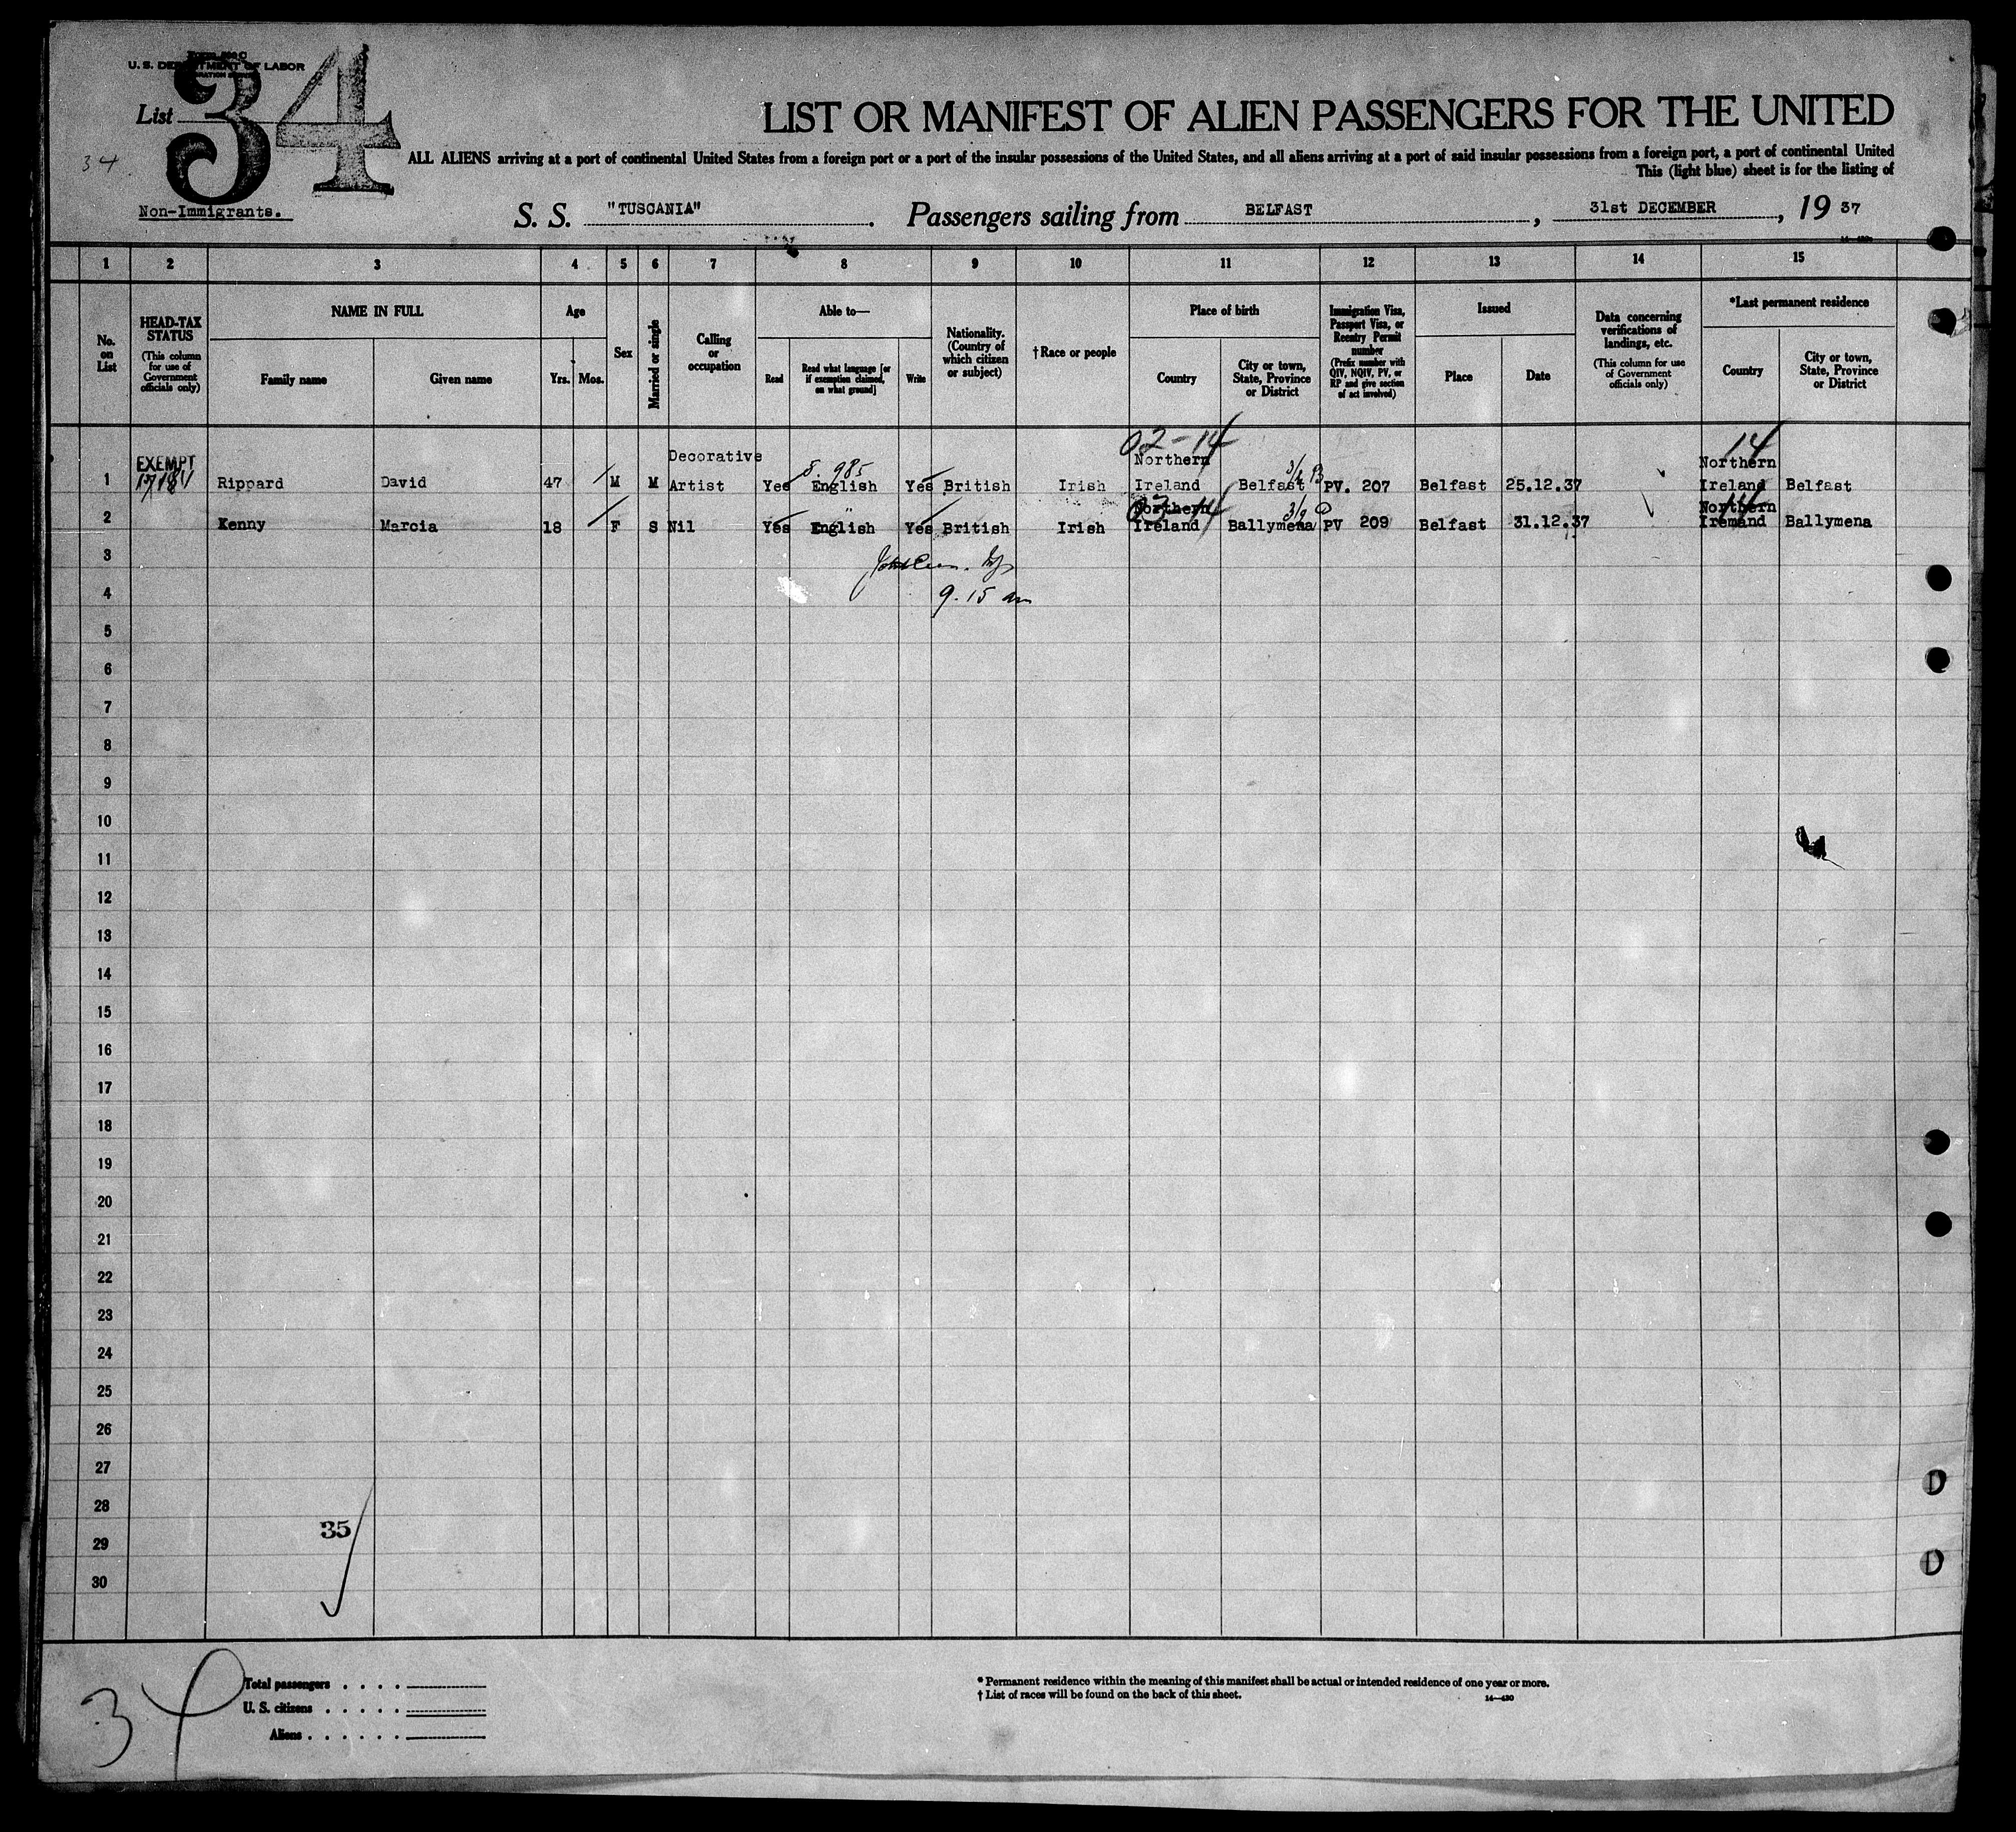 U. S. DEPARTMENT OF LABOR
List 34
34
LIST OR MANIFEST OF ALIEN PASSENGERS FOR THE UNITED
ALL ALIENS arriving at a port of continental United States from a foreign port or a port of the insular possessions of the United States, and all aliens arriving at a port of said insular possessions from a foreign port, a port of continental United
This (light blue) sheet is for the listing of
Non-Immigrants.
S. S. "TUSCANIA". Passengers sailing from BELFAST, 31st DECEMBER, 19 37
1 2 3 4 5 6 7 8 9 10 11 12 13 14 15
No. on List
HEAD-TAX STATUS
(This column for use of Government officials only)
NAME IN FULL
Family name
Given name
Age
Yrs. Mos.
Sex
Married or single
Calling or occupation
Able to—
Read
Read what language [or if exemption claimed, on what ground]
Write
Nationality. (Country of which citizen or subject)
†Race or people
Place of birth
Country
City or town, State, Province or District
Immigration Visa, Passport Visa, or Reentry Permit number
(Prefix number with QIV, NQIV, PV, or RP and give section of act involved)
Issued
Place
Date
Data concerning verifications of landings, etc.
(This column for use of Government officials only)
*Last permanent residence
Country
City or town, State, Province or District
02-14
14
EXEMPT
Decorative
8.985
Northern
Northern
1 Rippard David 47 M M Artist Yes English Yes British Irish Ireland Belfast PV. 207 Belfast 25.12.37 Ireland Belfast
14
Northern
Northern
2 Kenny Marcia 18 F S Nil Yes English Yes British Irish Ireland Ballymena PV 209 Belfast 31.12.37 Iremand Ballymena
3
4
9.15 am
5
6
7
8
9
10
11
12
13
14
15
16
17
18
19
20
21
22
23
24
25
26
27
28
35
29
30
34
Total passengers . . . .
U. S. citizens . . . . .
Aliens . . . . . .
* Permanent residence within the meaning of this manifest shall be actual or intended residence of one year or more.
† List of races will be found on the back of this sheet.
14—430